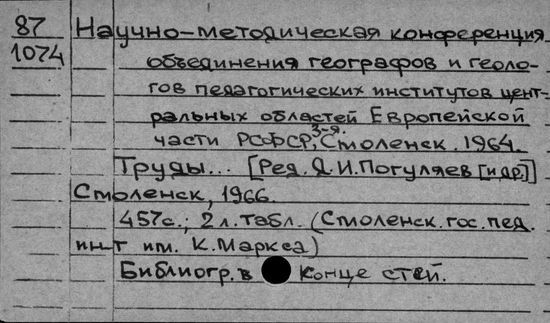 87 Научно-методическая конференция
1074 объединения географов и геоло-
гов педагогических институтов цент-
ральных областей Европейской
части РСФСР, 3-я. Смоленск. 1964.
Труды... [Ред. Д.И.Погуляев [и др.]]
Смоленск, 1966.
457с.; 2 л. табл. (Смоленск. гос. пед.
ин-т им. К. Маркса)
Библиогр. в конце стей.